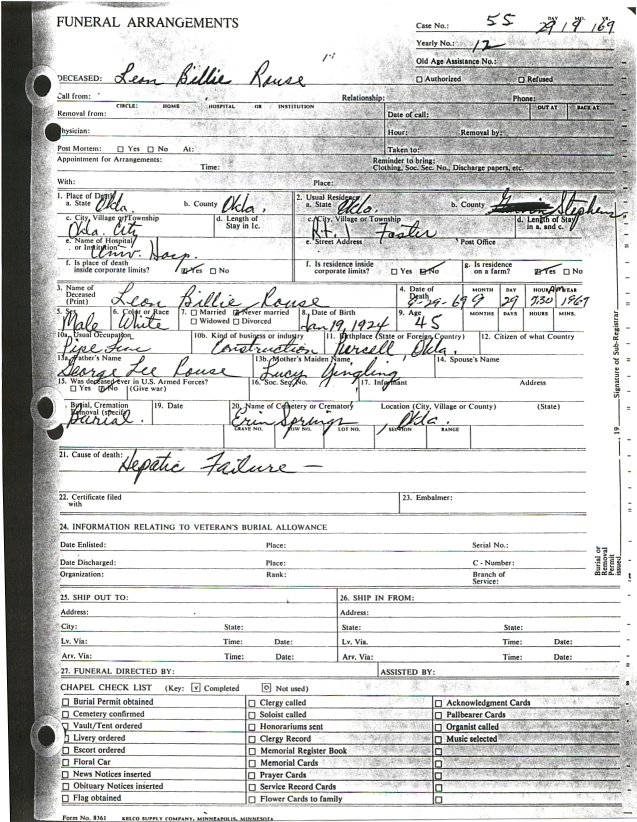 FUNERAL ARRANGEMENTS
Case No.: 55 29 9 69
DAY MO. YR.
Yearly No.: 12
Old Age Assistance No.:
☐ Authorized ☐ Refused
DECEASED: Leon Billie Rouse
Call from: Relationship: Phone:
CIRCLE: HOME HOSPITAL OR INSTITUTION OUT AT BACK AT
Removal from: Date of call:
Physician: Hour: Removal by:
Post Mortem: ☐ Yes ☐ No At: Taken to:
Appointment for Arrangements: Reminder to bring:
Time: Clothing, Soc. Sec. No., Discharge papers, etc.
With: Place:
1. Place of Death 2. Usual Residence
a. State Okla. b. County Okla. a. State Okla. b. County Stephens
c. City, Village or Township d. Length of Stay in 1c. c. City, Village or Township d. Length of Stay in a. and c.
Okla. City Rt. 1 Foster
e. Name of Hospital or Institution e. Street Address Post Office
Univ. Hosp.
f. Is place of death inside corporate limits? ☑ Yes ☐ No f. Is residence inside corporate limits? ☐ Yes ☑ No g. Is residence on a farm? ☑ Yes ☐ No
3. Name of Deceased (Print) Leon Billie Rouse 4. Date of Death 9-29-69
MONTH DAY HOUR AM YEAR
9 29 7:30 1969
5. Sex Male 6. Color or Race White 7. ☐ Married ☑ Never married ☐ Widowed ☐ Divorced 8. Date of Birth Jan 19, 1924 9. Age 45
MONTHS DAYS HOURS MINS.
10a. Usual Occupation 10b. Kind of business or industry 11. Birthplace (State or Foreign Country) 12. Citizen of what Country
Pipe Line Construction Purcell, Okla.
13a. Father's Name 13b. Mother's Maiden Name 14. Spouse's Name
George Lee Rouse Lucy Yingling
15. Was deceased ever in U.S. Armed Forces? 16. Soc. Sec. No. 17. Informant Address
☐ Yes ☑ No (Give war)
Burial, Cremation Removal (specify) 19. Date 20. Name of Cemetery or Crematory Location (City, Village or County) (State)
Burial. Erin Springs Okla.
GRAVE NO. ROW NO. LOT NO. SECTION RANGE
21. Cause of death:
Hepatic Failure —
22. Certificate filed with 23. Embalmer:
24. INFORMATION RELATING TO VETERAN'S BURIAL ALLOWANCE
Date Enlisted: Place: Serial No.:
Date Discharged: Place: C - Number:
Organization: Rank: Branch of Service:
25. SHIP OUT TO: 26. SHIP IN FROM:
Address: Address:
City: State: State: State:
Lv. Via: Time: Date: Lv. Via. Time: Date:
Arv. Via: Time: Date: Arv. Via: Time: Date:
27. FUNERAL DIRECTED BY: ASSISTED BY:
CHAPEL CHECK LIST (Key: ☑ Completed ⊡ Not used)
☐ Burial Permit obtained ☐ Clergy called ☐ Acknowledgment Cards
☐ Cemetery confirmed ☐ Soloist called ☐ Pallbearer Cards
☐ Vault/Tent ordered ☐ Honorariums sent ☐ Organist called
☐ Livery ordered ☐ Clergy Record ☐ Music selected
☐ Escort ordered ☐ Memorial Register Book ☐
☐ Floral Car ☐ Memorial Cards ☐
☐ News Notices inserted ☐ Prayer Cards ☐
☐ Obituary Notices inserted ☐ Service Record Cards ☐
☐ Flag obtained ☐ Flower Cards to family ☐
Form No. 8361 KELCO SUPPLY COMPANY, MINNEAPOLIS, MINNESOTA
Burial or Removal Permit issued 19 Signature of Sub-Registrar